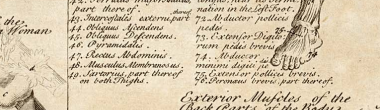 the
Woman
part there of.
43. Intercostales externi, part
44. Obliquus Ascendens
45. Obliquus Descendens.
46. Pyramidalis.
47. Rectus Abdominis.
48. Musculus Membranosus
49. Sartorius, part thereof
on both Thighs.
nation in the Left Foot.
72. Abductor pollicis
pedis.
73. Extensor Digito-
rum pedis brevis
74. Abductor
minimi digiti pe
75. Extensor pollicis brevis.
76. Peronæus brevis, part thereof.
Exterior Muscles of the
75
76
74